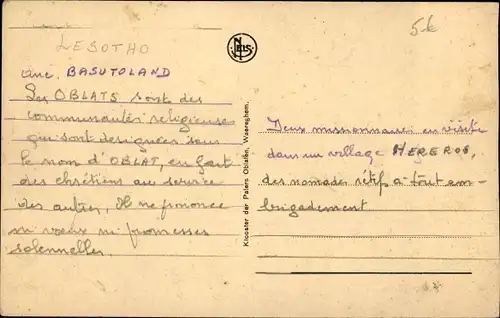 LESOTHO
anc. BASUTOLAND
Les OBLATS sont des
communautés religieuses
qui sont designées sous
le nom d'OBLAT, en fait
des chrétiens au service
des autres, Ils ne prononce
ni voeux ni promesses
solennelles.
NELS
Klooster der Paters Oblaten, Waereghem.
5€
Deux missionnaires en visite
dans un village HEREROS,
des nomades rétifs à tout em-
brigadement